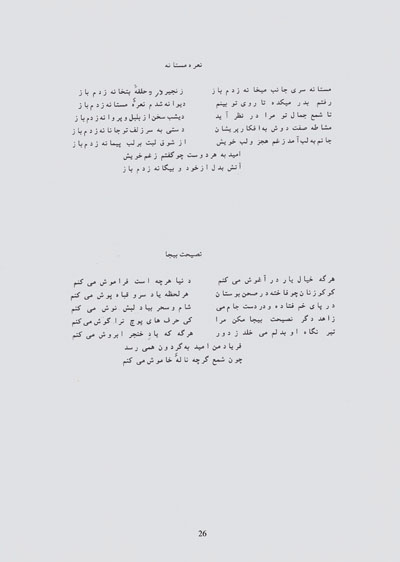 نعره مستانه
مستانه سری جانب میخانه زدم باز زنجیر در و حلقهٔ بتخانه زدم باز
رفتم بدر میکده تا روی تو بینم دیوانه شدم نعرهٔ مستانه زدم باز
تا شمع جمال تو مرا در نظر آید دیشب سخن از بلبل و پروانه زدم باز
مشاطه صفت دوش به افکار پریشان دستی به سر زلف تو جانانه زدم باز
جانم به لب آمد ز غم هجر و لب خویش از شوق لبت بر لب پیمانه زدم باز
امید به هر دوست چو گفتم ز غم خویش
آتش بدل از خود و بیگانه زدم باز
نصیحت بیجا
هرگه خیال یار در آغوش می کنم دنیا هرچه است فراموش می کنم
کوکو زنان چو فاخته در صحن بوستان هر لحظه یاد سرو قباه پوش می کنم
در پای خم فتاده و در دست جام می شام و سحر بیاد لبش نوش می کنم
زاهد دگر نصیحت بیجا مکن مرا کی حرف های پوچ ترا گوش می کنم
تیر نگاه او بدلم می خلد ز دور هرگه که یاد خنجر ابروش می کنم
فریاد من امید به گردون همی رسد
چون شمع گرچه نالهٔ خاموش می کنم
26